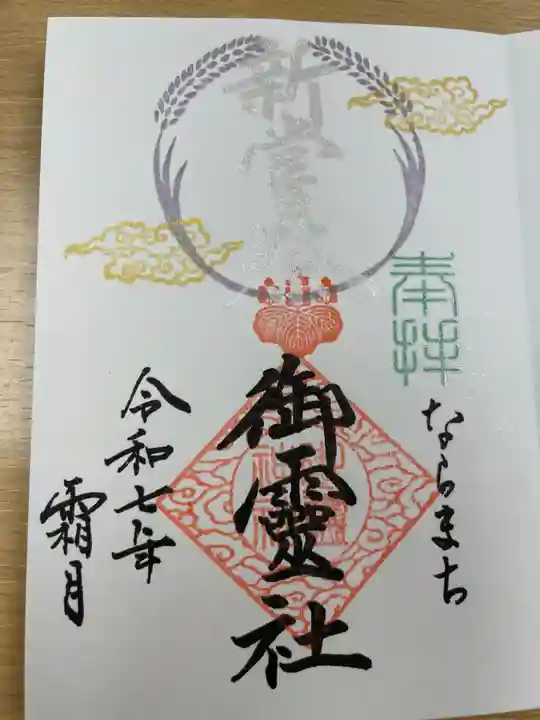 奉拝
ならまち
新嘗祭
御靈社
令和七年
霜月